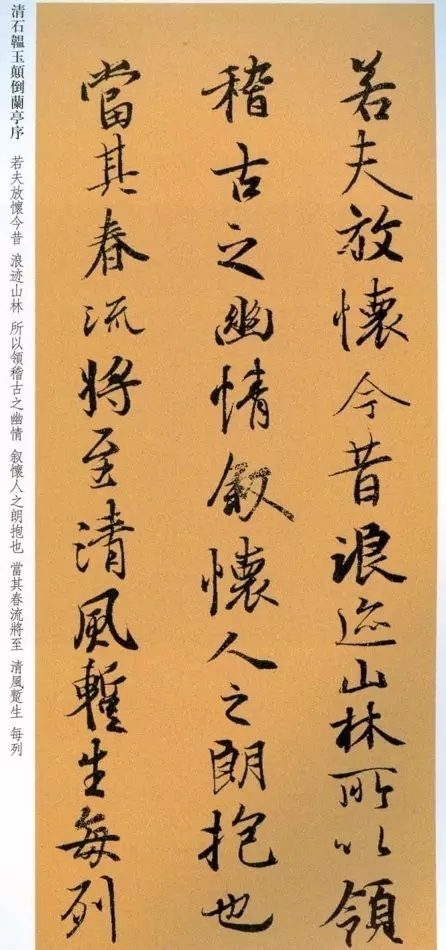 若夫放懷今昔浪迹山林所以領
稽古之幽情叙懷人之朗抱也
當其春流將至清風蹔生每列
清石韞玉顛倒蘭亭序 若夫放懷今昔 浪迹山林 所以領稽古之幽情 叙懷人之朗抱也 當其春流將至 清風蹔生 每列